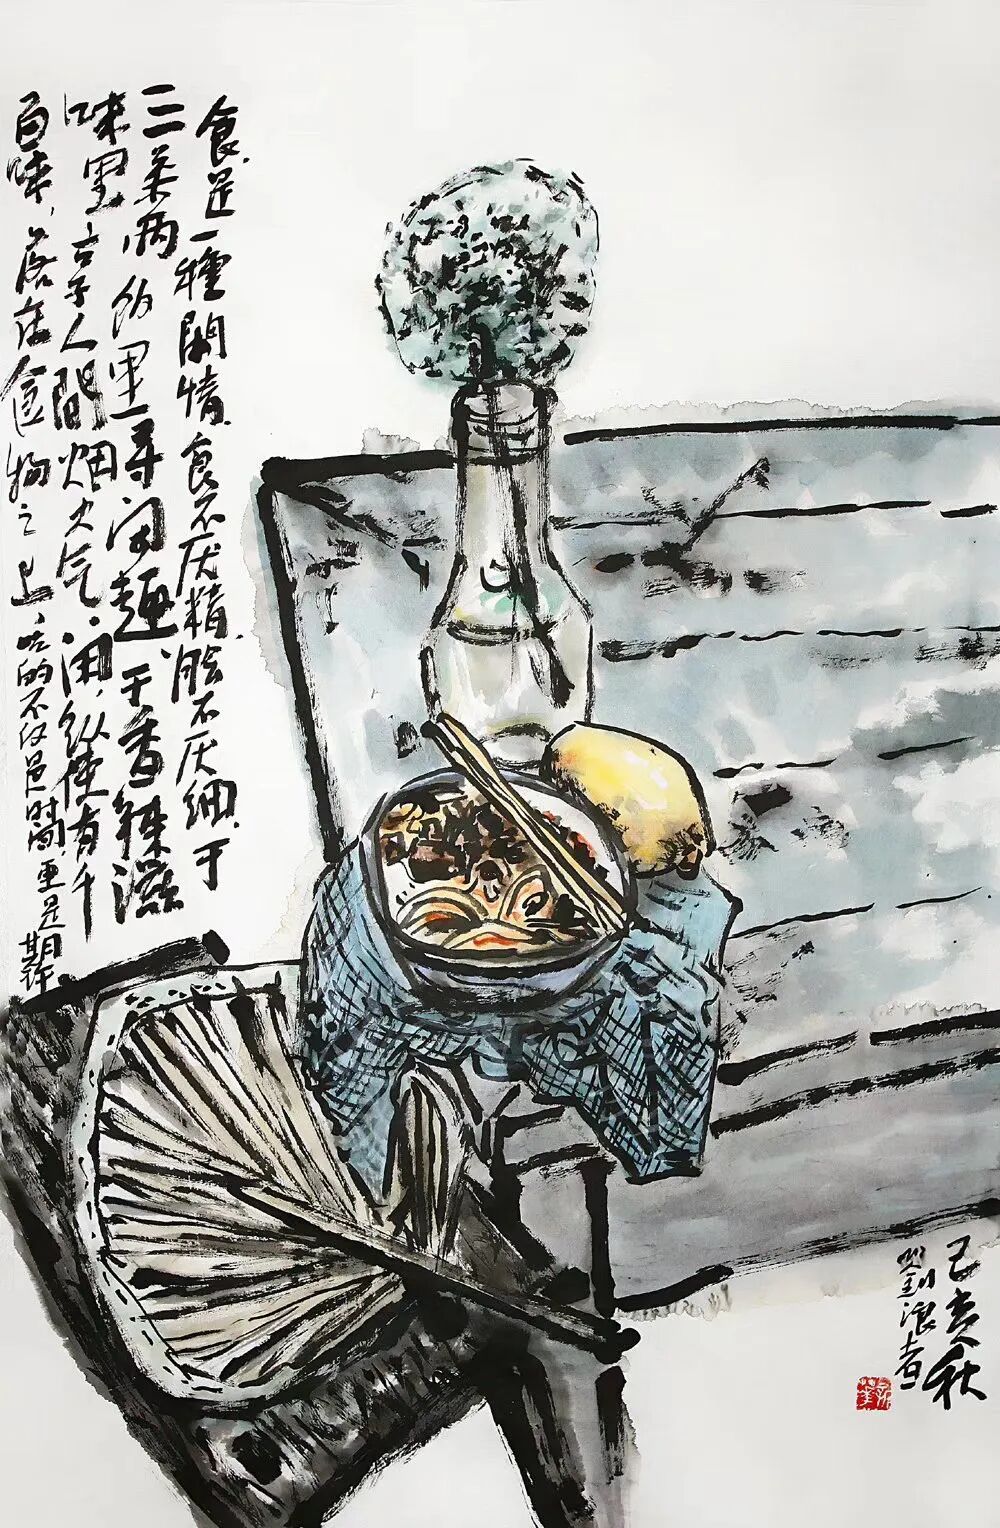 食是一種閑情.食不厌精,脍不厌细.于
三菜两里寻闲趣,于香辣滋
味里享人間烟火气,纵使有千
百味,落在食物之上,吃的不仅是時間,更是期许
己亥秋
浪